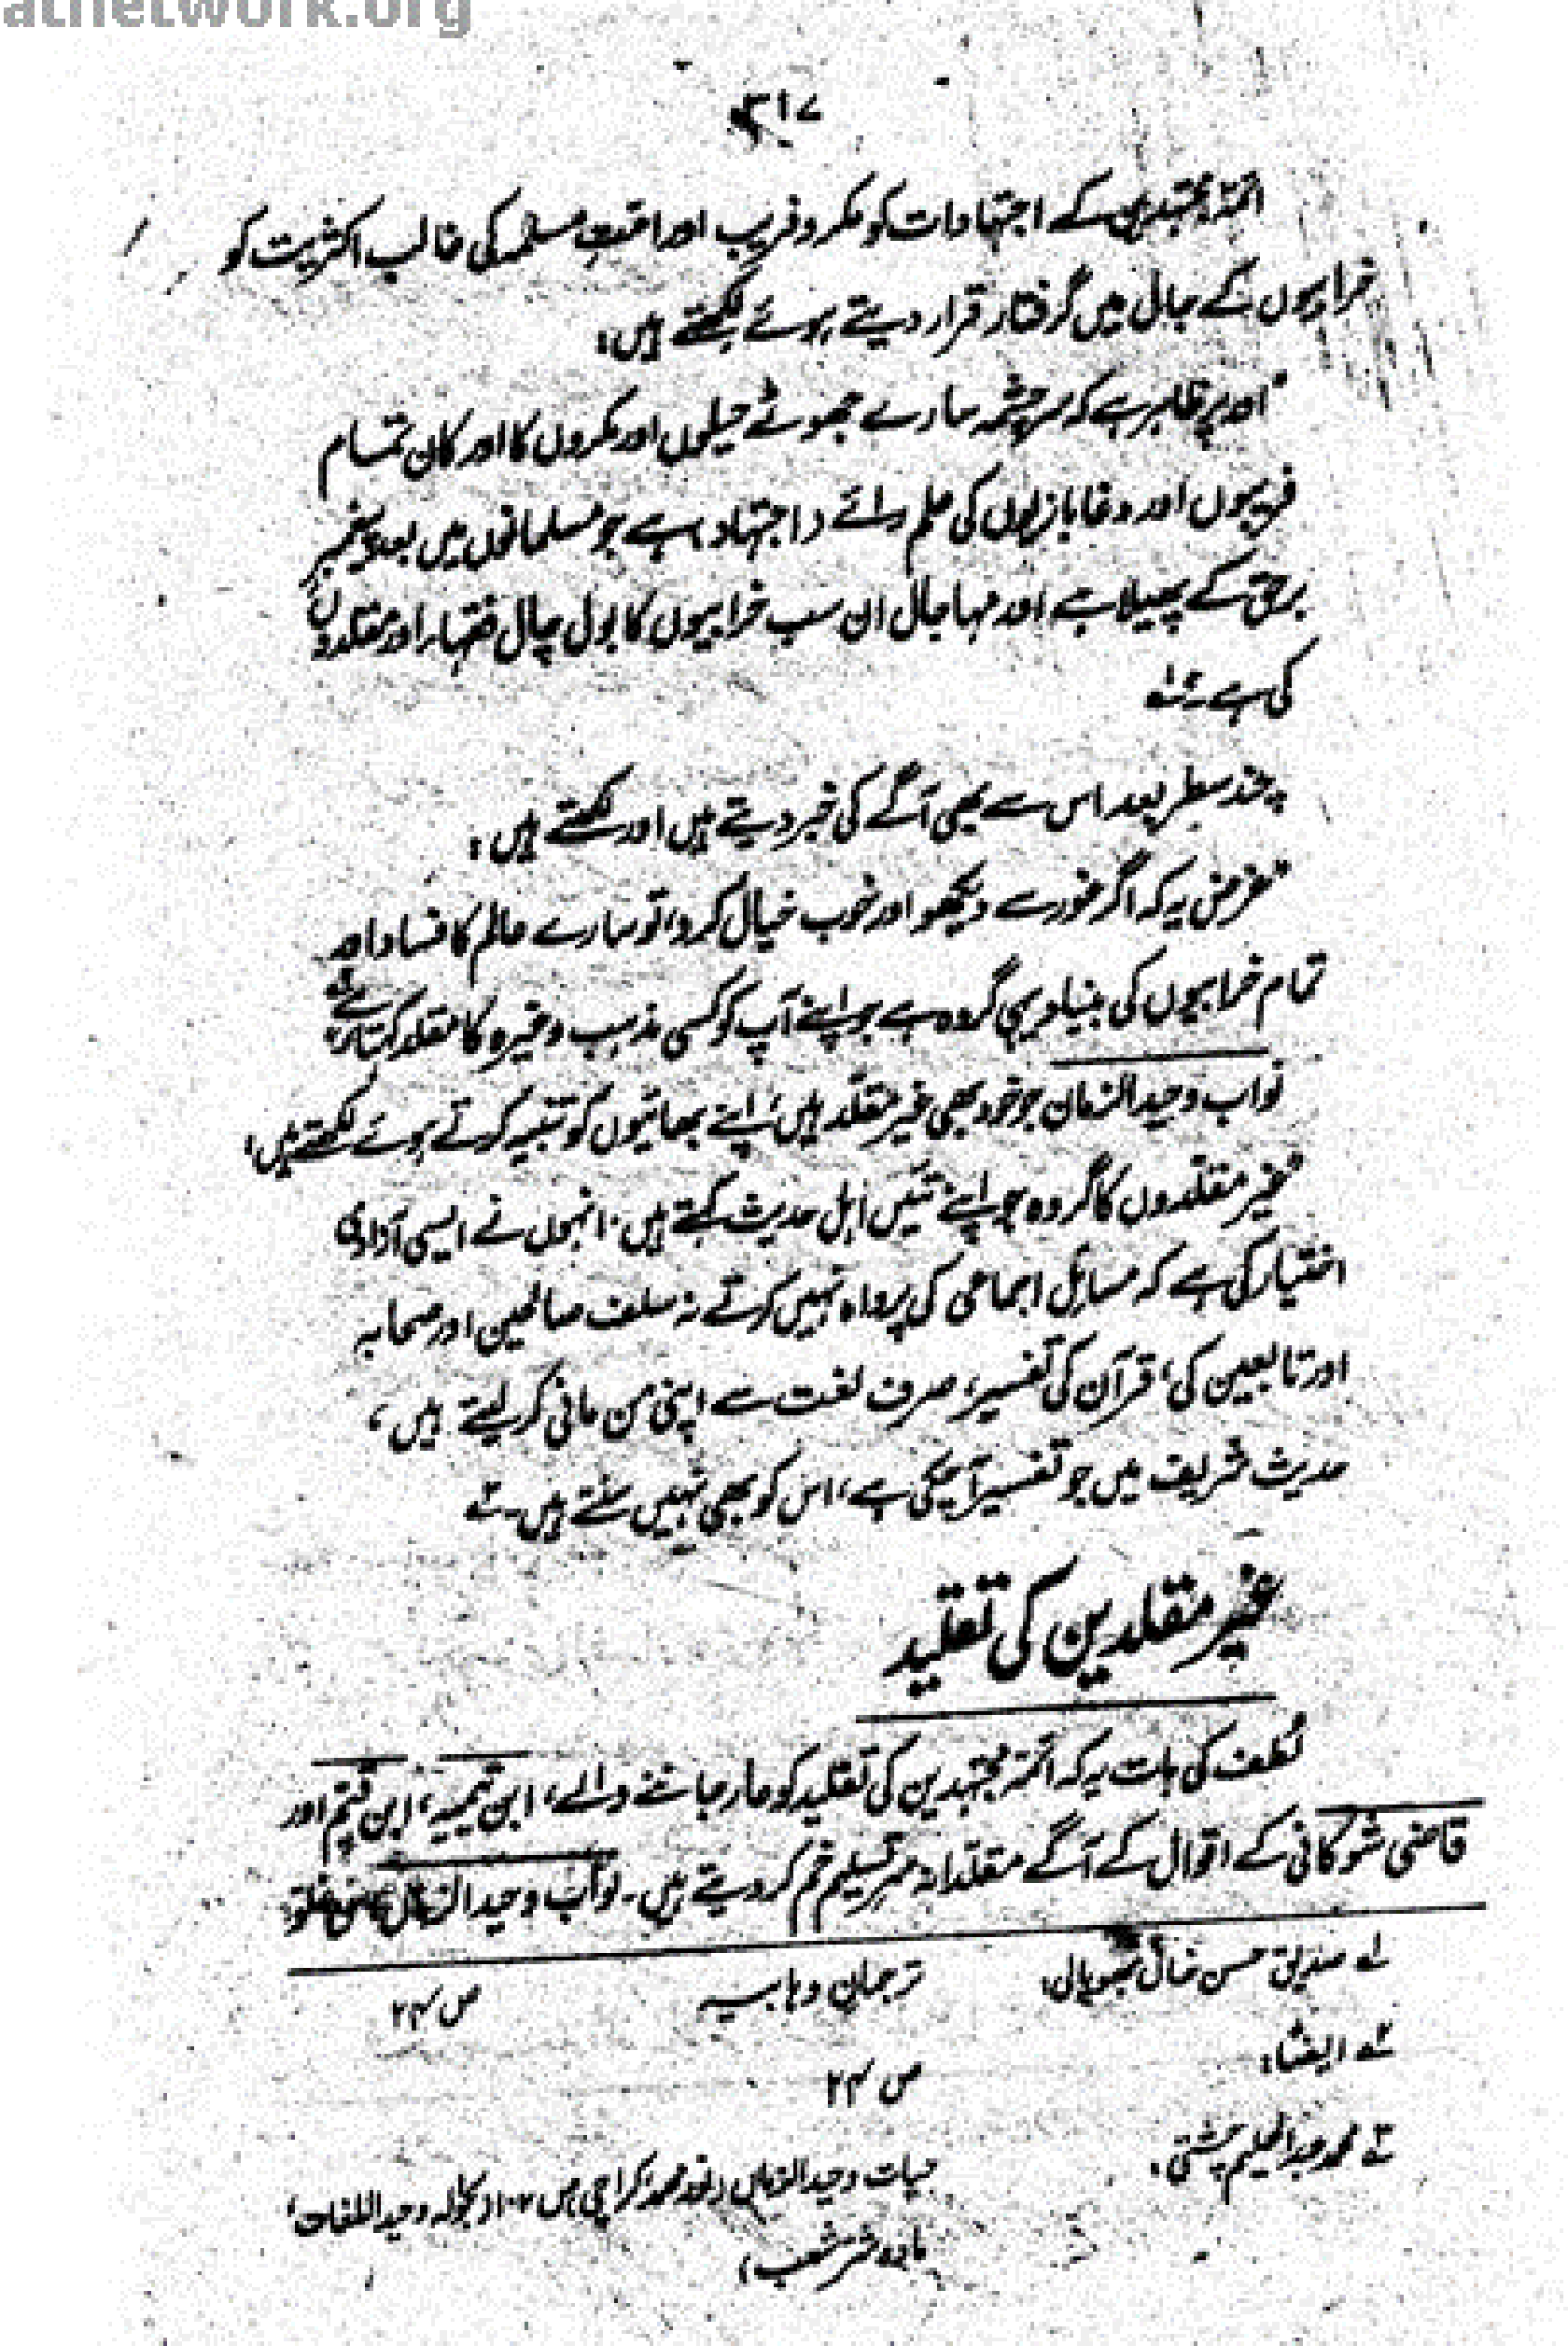 atnetwork.org
۳۱۷
ائمۂ مجتہدین کے اجتہادات کو مکر و فریب اور امتِ مسلمہ کی غالب اکثریت کو
خرابیوں کے جال میں گرفتار قرار دیتے ہوئے لکھتے ہیں:
"اور یہ ظاہر ہے کہ سرچشمہ سارے جھوٹے حیلوں اور مکروں کا اور کان تمام
فریبوں اور دغابازیوں کی علم رائے (اجتہاد) ہے جو مسلمانوں میں بعد پیغمبر
برحق کے پھیلا ہے اور مہاجال ان سب خرابیوں کا بول چال فقہاء اور مقلدوں
کی ہے۔" لہ
چند سطر بعد اس سے بھی آگے کی خبر دیتے ہیں اور لکھتے ہیں:
"غرض یہ کہ اگر غور سے دیکھو اور خوب خیال کرو، تو سارے عالم کا فساد اور
تمام خرابیوں کی بنیاد یہی گروہ ہے جو اپنے آپ کو کسی مذہب وغیرہ کا مقلد کہتا ہے" ۲ہ
نواب وحید الزمان جو خود بھی غیر مقلد ہیں، اپنے بھائیوں کو تنبیہ کرتے ہوئے لکھتے ہیں:
"غیر مقلدوں کا گروہ جو اپنے تئیں اہل حدیث کہتے ہیں، انہوں نے ایسی آزادی
اختیار کی ہے کہ مسائل اجماعی کی پرواہ نہیں کرتے نہ سلف صالحین اور صحابہ
اور تابعین کی، قرآن کی تفسیر، صرف لغت سے اپنی من مانی کر لیتے ہیں،
حدیث شریف میں جو تفسیر آ چکی ہے، اس کو بھی نہیں سنتے ہیں۔" ۳ہ
غیر مقلدین کی تقلید
لطف کی بات یہ کہ ائمۂ مجتہدین کی تقلید کو عار جاننے والے، ابن تیمیہ، ابن قیم اور
قاضی شوکانی کے اقوال کے آگے مقلدانہ سرِ تسلیم خم کر دیتے ہیں۔ نواب وحید الزمان
لہ صدیق حسن خان بھوپالی، ترجمان وہابیہ ص ۲۴
۲ہ ایضاً: ص ۲۴
۳ہ محمد عبدالحلیم چشتی، حیات وحید الزمان (نور محمد، کراچی) ص ۱۰۲ (بحوالہ وحید اللغات،
مادہ شر شعب)